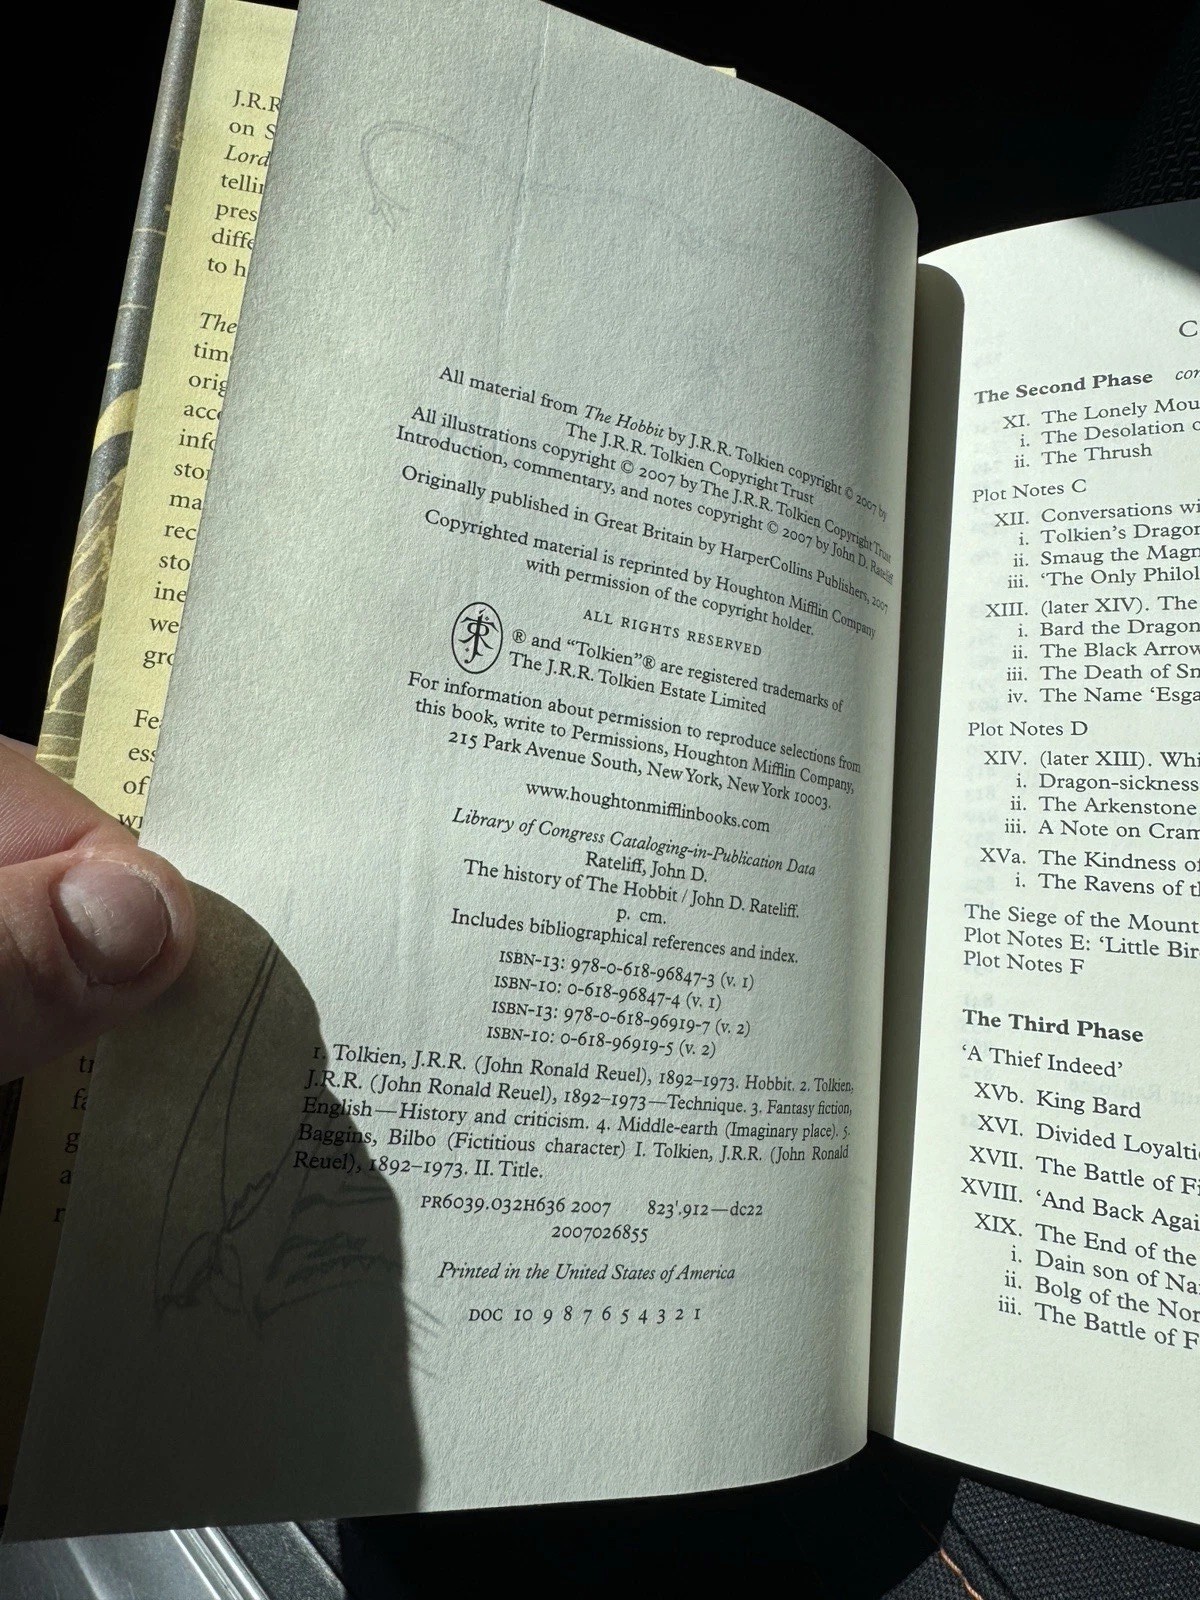 J.R.R
on S
Lord
tellin
pres
diffe
to h
The
tim
orig
acc
info
stor
ma
rec
sto
ine
we
gro
Fe
ess
of
wr
All material from The Hobbit by J.R.R. Tolkien copyright © 2007 by
The J.R.R. Tolkien Copyright Trust
All illustrations copyright © 2007 by The J.R.R. Tolkien Copyright Trust
Introduction, commentary, and notes copyright © 2007 by John D. Rateliff
Originally published in Great Britain by HarperCollins Publishers, 2007
Copyrighted material is reprinted by Houghton Mifflin Company
with permission of the copyright holder.
ALL RIGHTS RESERVED
® and “Tolkien”® are registered trademarks of
The J.R.R. Tolkien Estate Limited
For information about permission to reproduce selections from
this book, write to Permissions, Houghton Mifflin Company,
215 Park Avenue South, New York, New York 10003.
www.houghtonmifflinbooks.com
Library of Congress Cataloging-in-Publication Data
Rateliff, John D.
The history of The Hobbit / John D. Rateliff.
p. cm.
Includes bibliographical references and index.
ISBN-13: 978-0-618-96847-3 (v. 1)
ISBN-10: 0-618-96847-4 (v. 1)
ISBN-13: 978-0-618-96919-7 (v. 2)
ISBN-10: 0-618-96919-5 (v. 2)
1. Tolkien, J.R.R. (John Ronald Reuel), 1892–1973. Hobbit. 2. Tolkien,
J.R.R. (John Ronald Reuel), 1892–1973—Technique. 3. Fantasy fiction,
English—History and criticism. 4. Middle-earth (Imaginary place). 5.
Baggins, Bilbo (Fictitious character) I. Tolkien, J.R.R. (John Ronald
Reuel), 1892–1973. II. Title.
PR6039.032H636 2007 823'.912—dc22
2007026855
Printed in the United States of America
DOC 10 9 8 7 6 5 4 3 2 1
C
The Second Phase con
XI. The Lonely Mou
i. The Desolation o
ii. The Thrush
Plot Notes C
XII. Conversations wi
i. Tolkien’s Dragon
ii. Smaug the Magn
iii. ‘The Only Philol
XIII. (later XIV). The
i. Bard the Dragon
ii. The Black Arrow
iii. The Death of Sm
iv. The Name ‘Esga
Plot Notes D
XIV. (later XIII). Whi
i. Dragon-sickness
ii. The Arkenstone
iii. A Note on Cram
XVa. The Kindness of
i. The Ravens of th
The Siege of the Mount
Plot Notes E: ‘Little Bir
Plot Notes F
The Third Phase
‘A Thief Indeed’
XVb. King Bard
XVI. Divided Loyalti
XVII. The Battle of Fi
XVIII. ‘And Back Agai
XIX. The End of the
i. Dain son of Na
ii. Bolg of the Nor
iii. The Battle of F